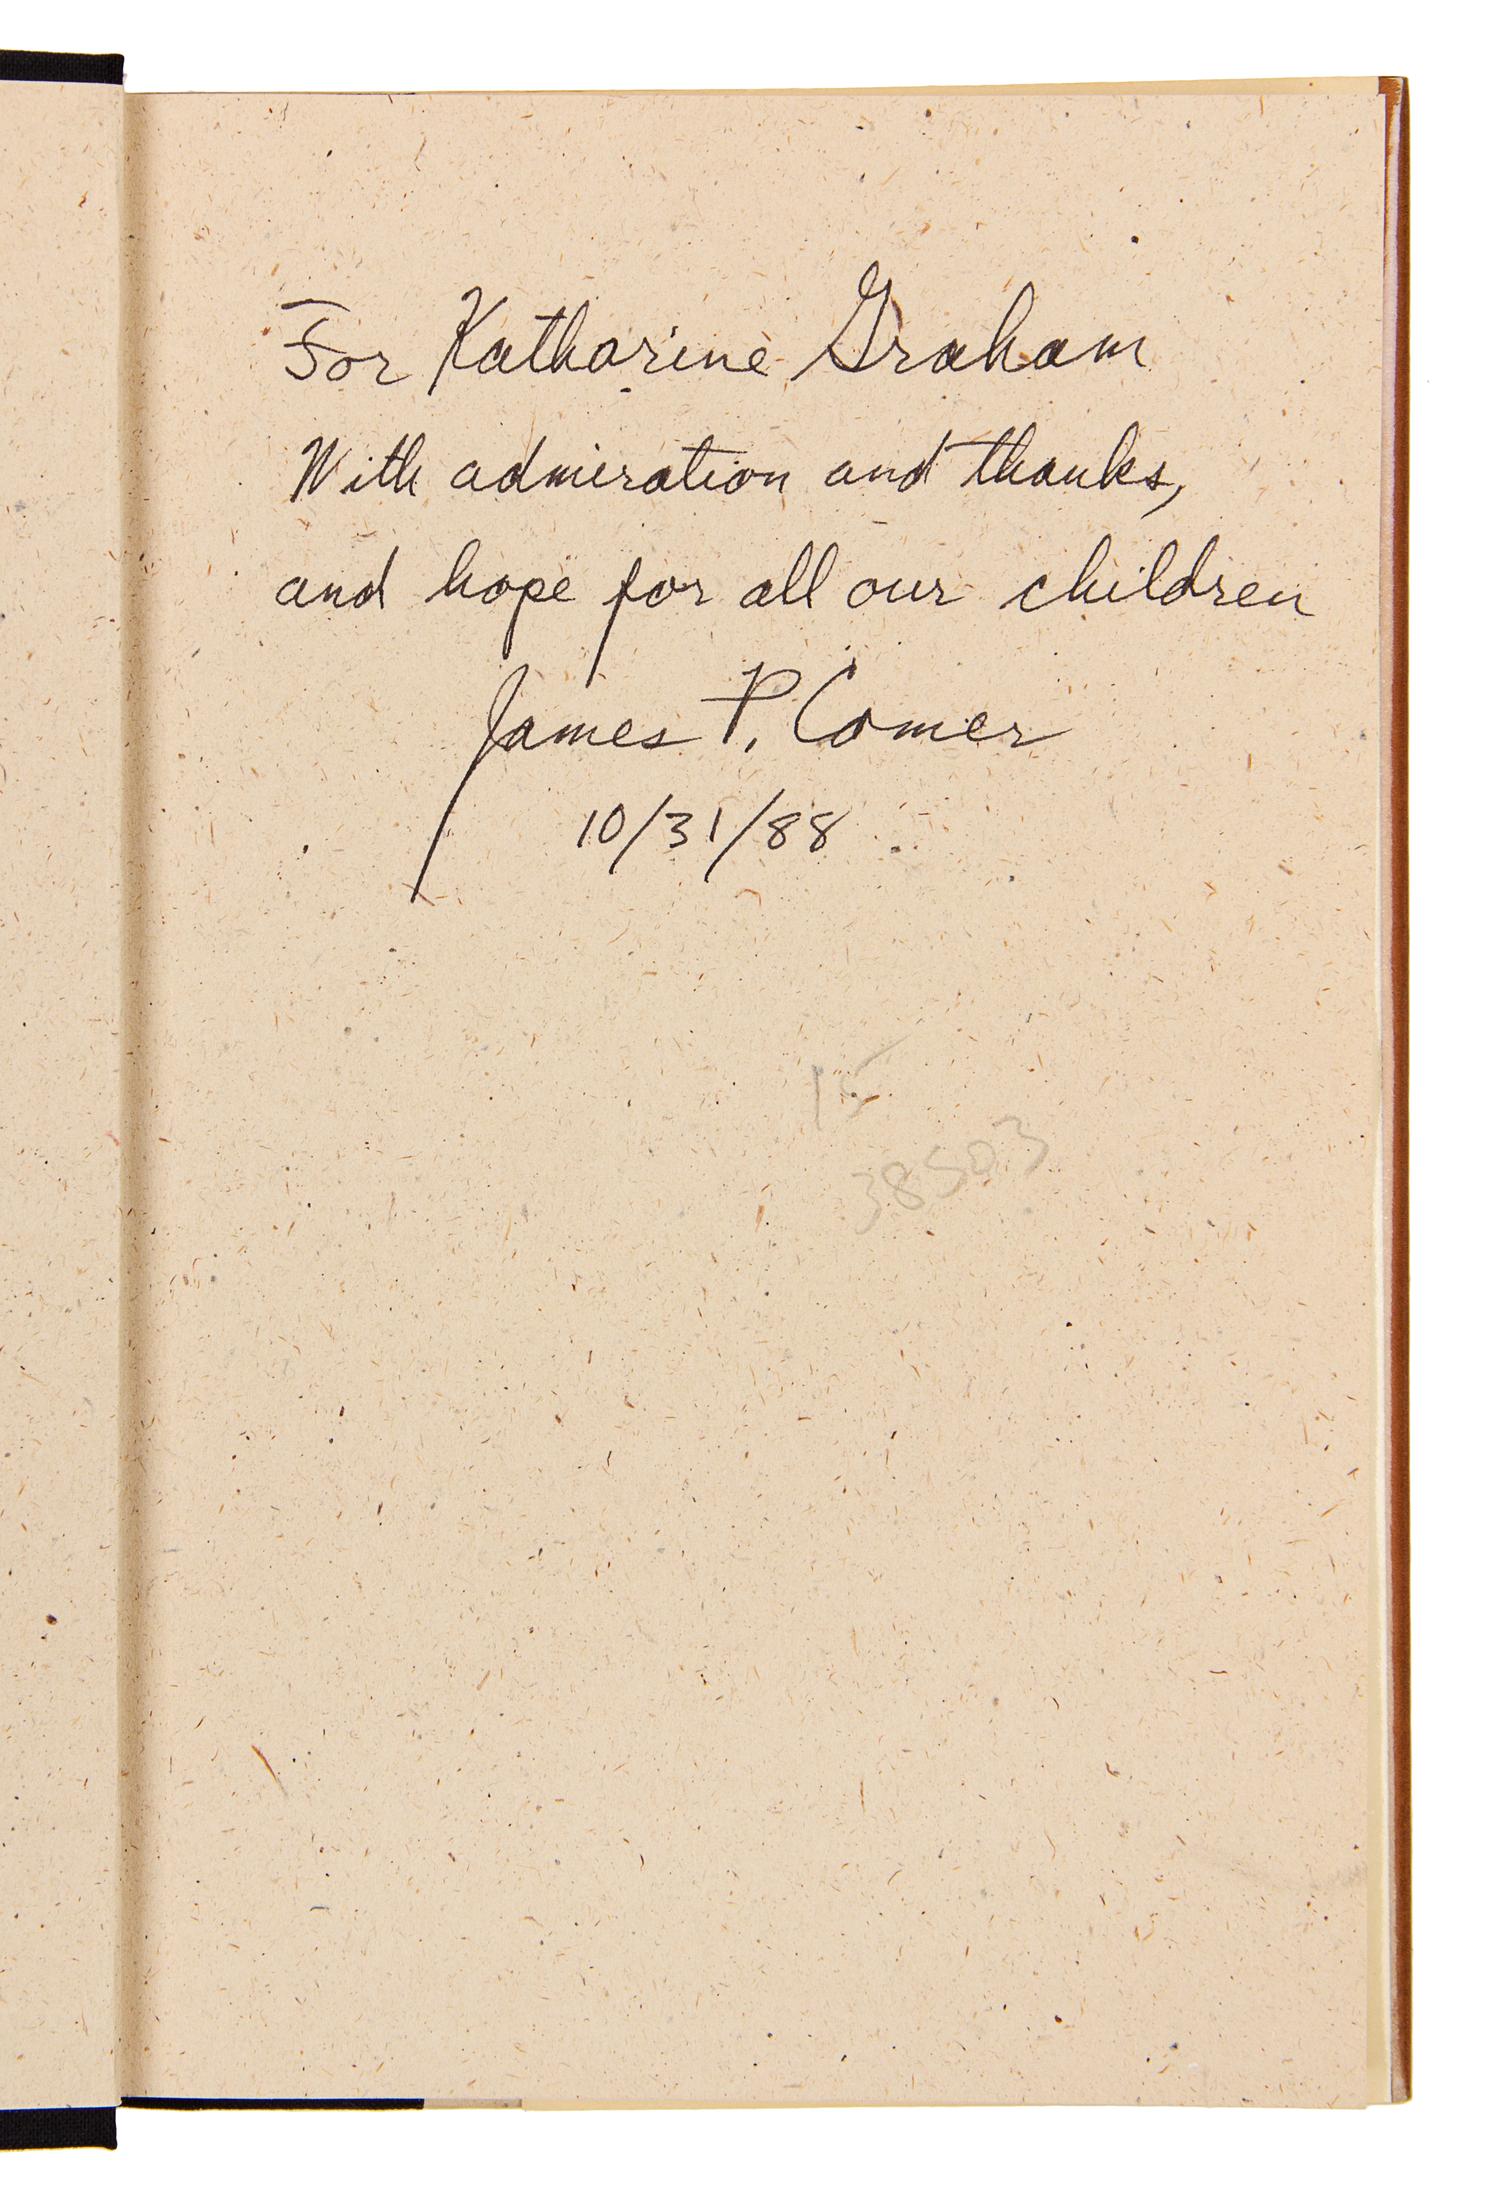 For Katharine Graham
With admiration and thanks,
and hope for all our children
James P. Comer
10/31/88
15
38503